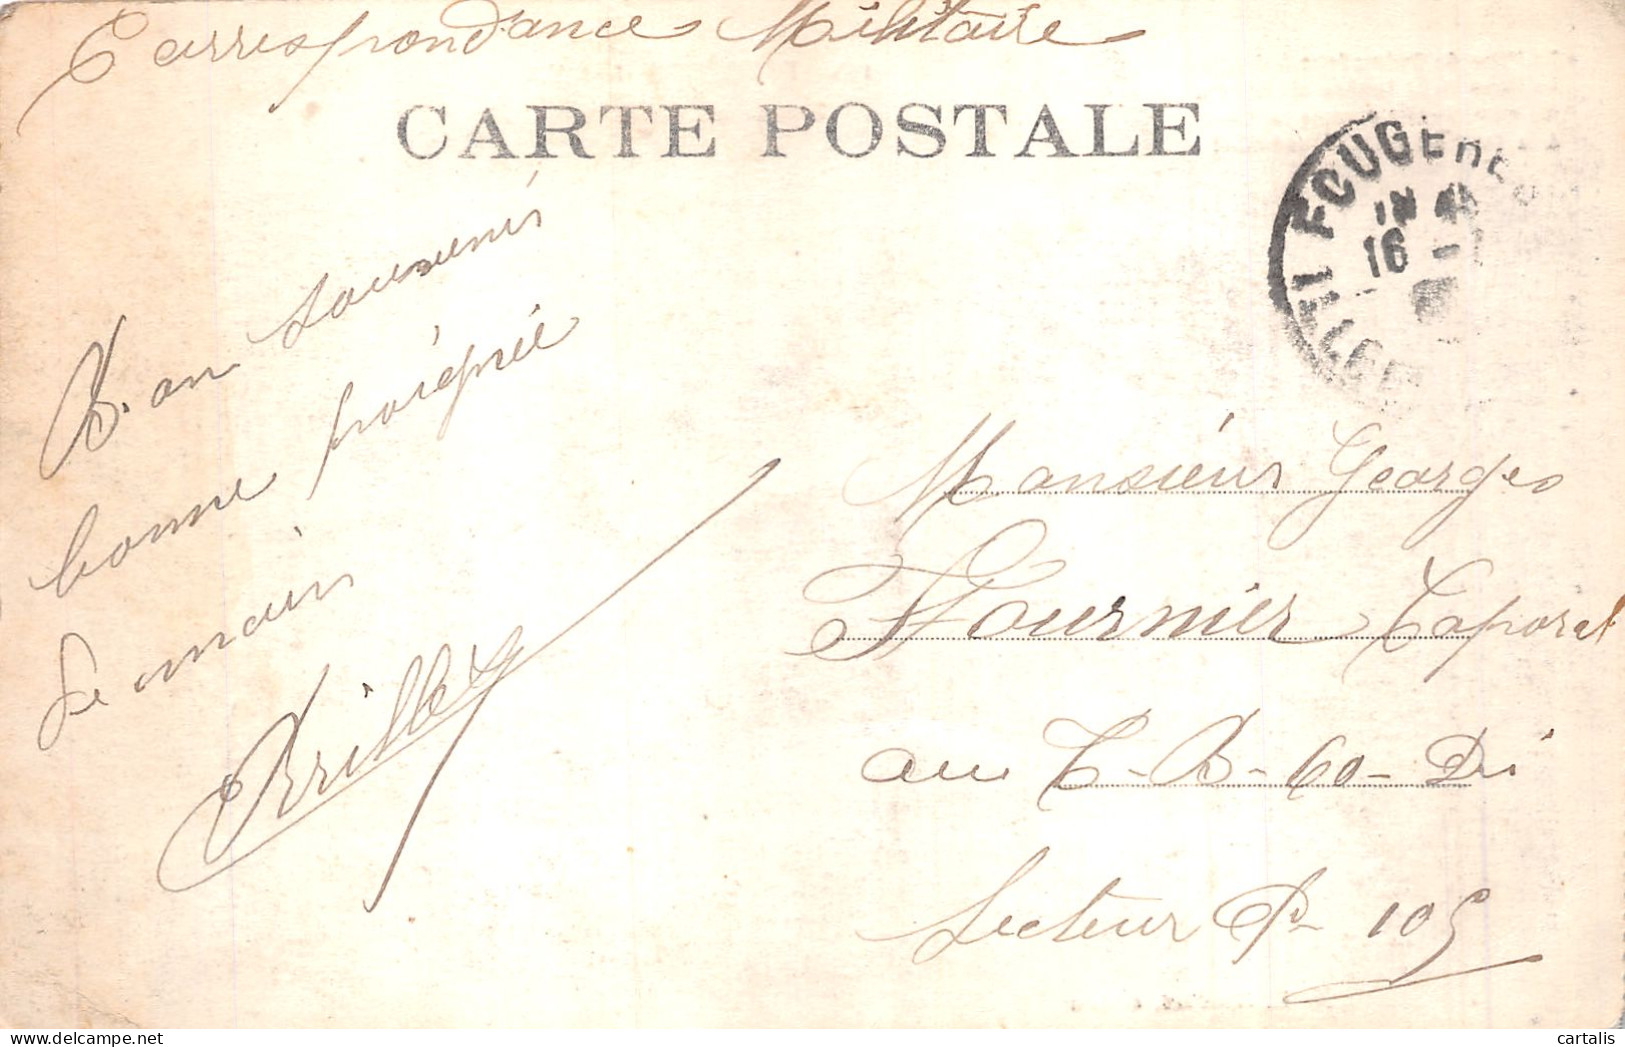 Correspondance Militaire
CARTE POSTALE
FOUGERES
ILLE
16
Bon souvenir
bonne poignée
de main
Monsieur Georges
Fournier Caporal
au C-B-60- Di
Secteur P- 105
cartalis